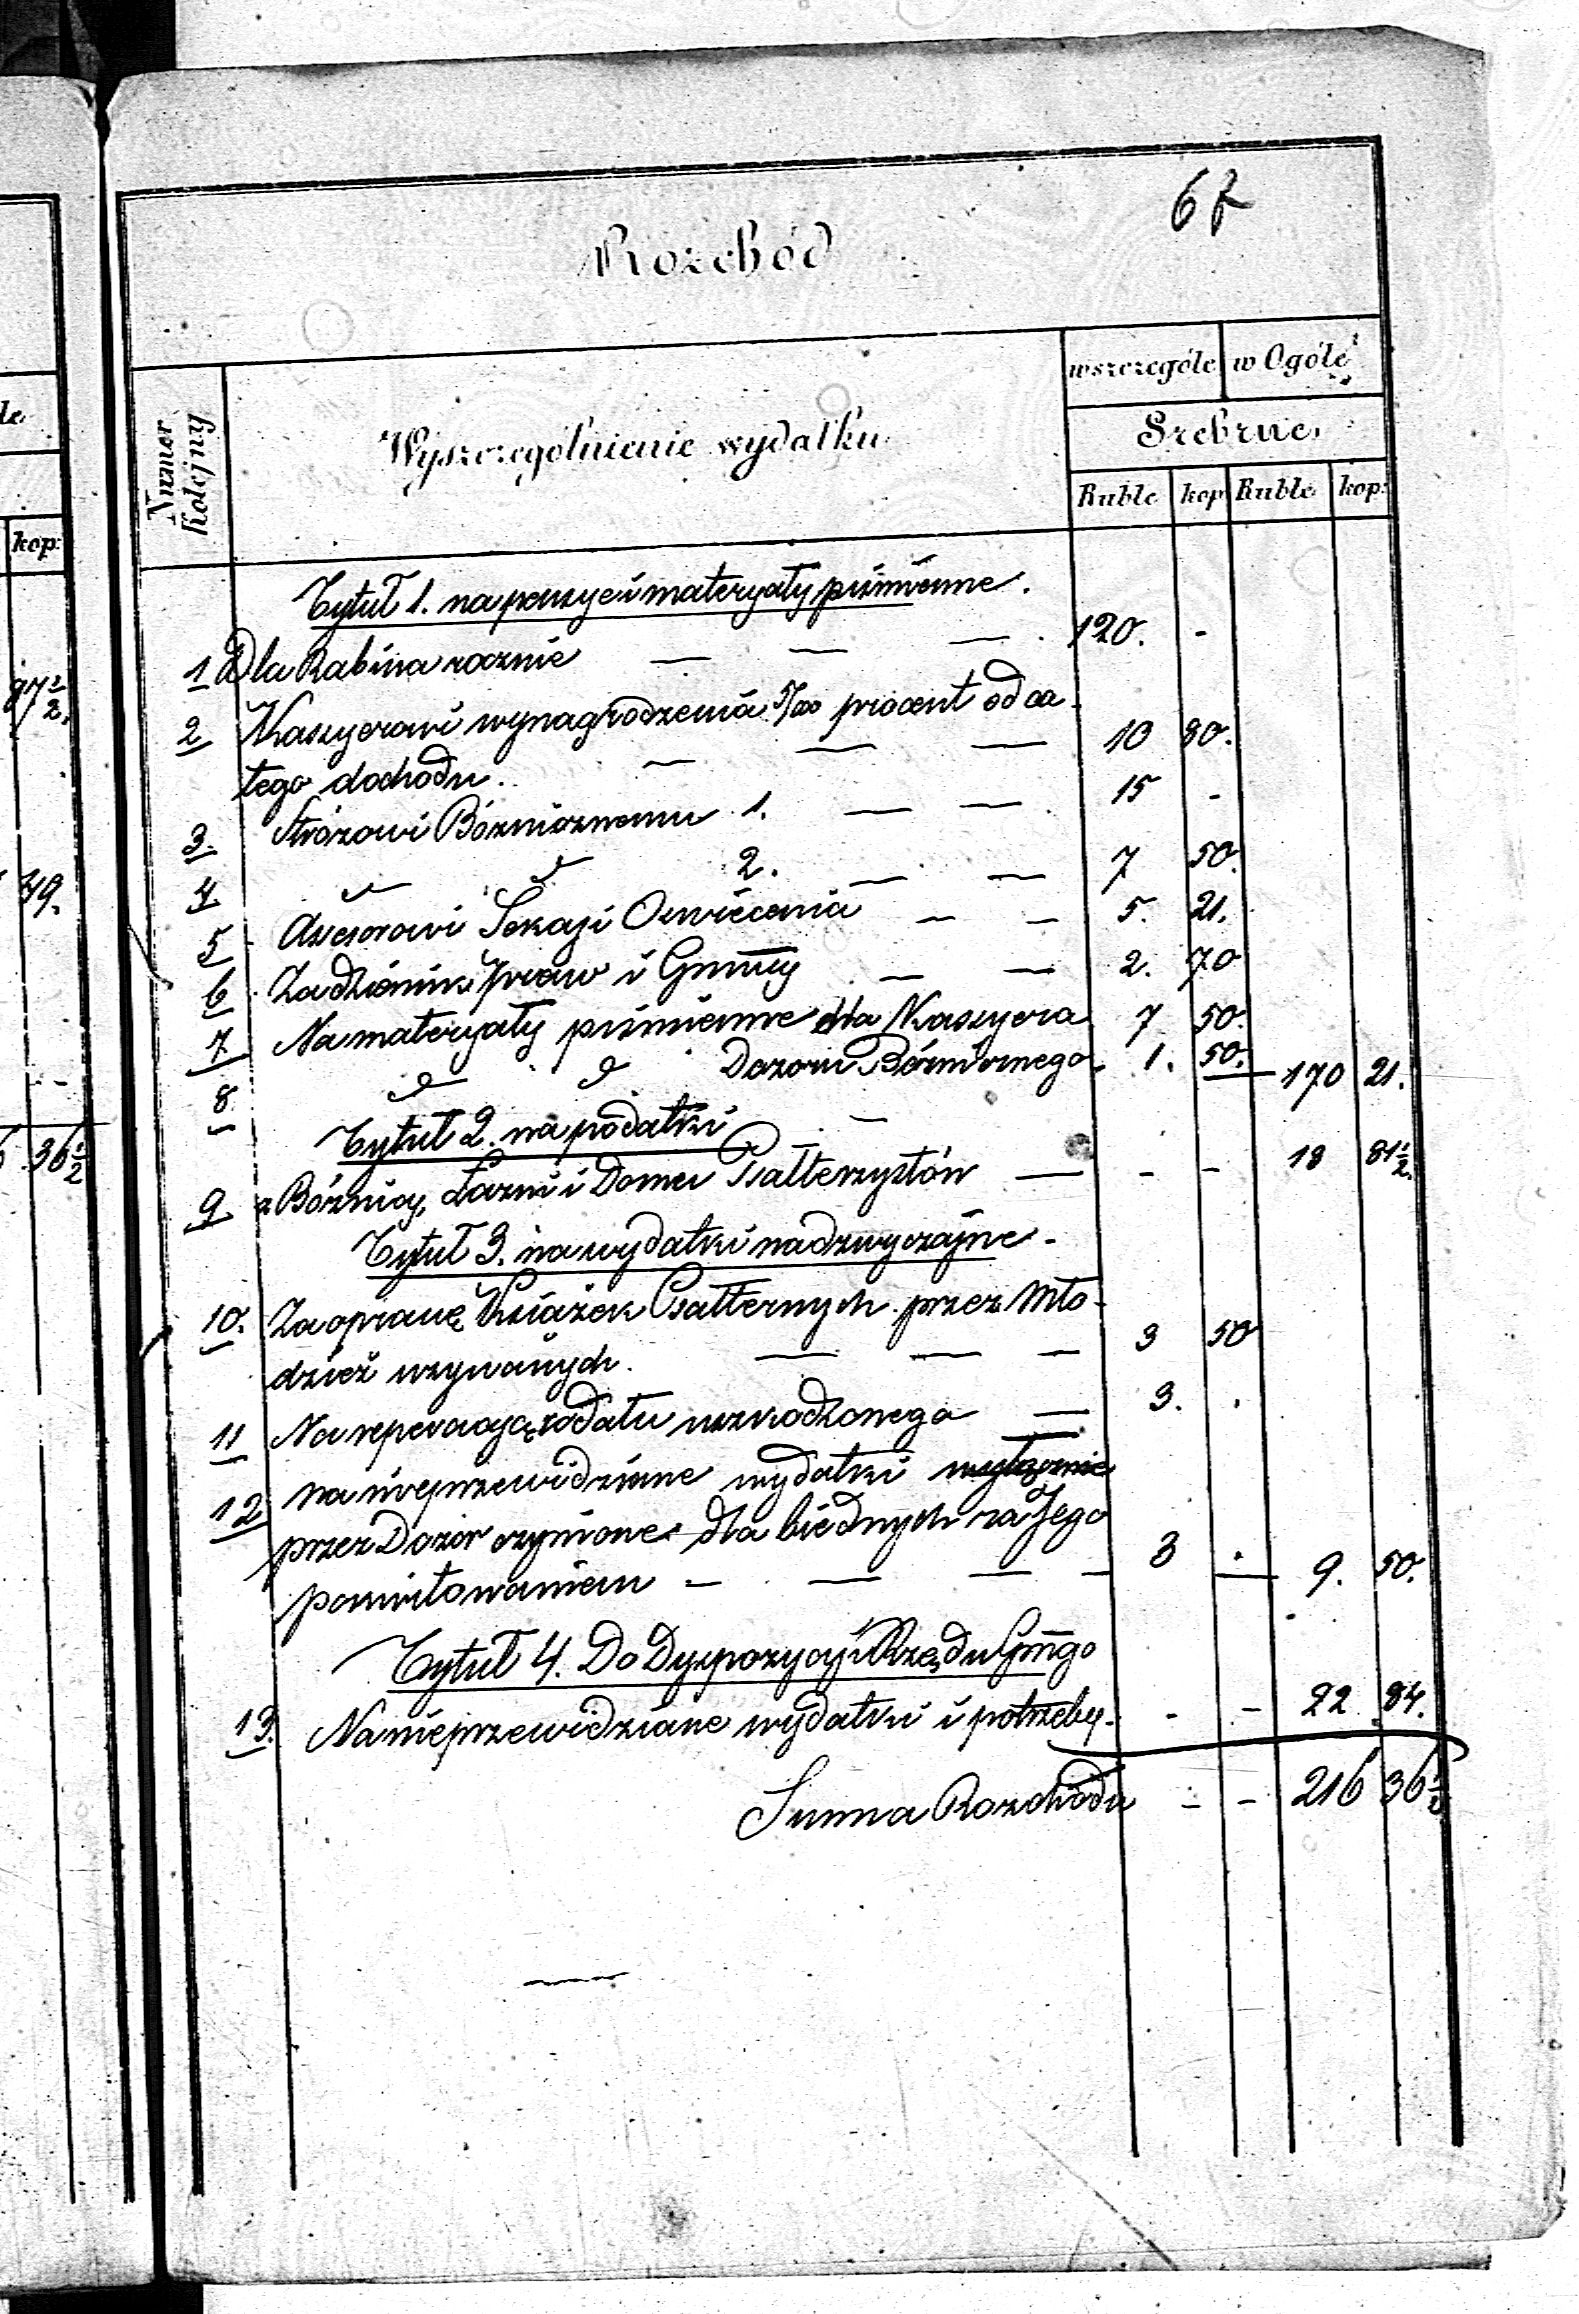 67
Rozchód
Numer Kolejny
Wyszczególnienie wydatku
wszczególe w Ogóle
Srebrne
Ruble kop Ruble kop:
Tytuł 1. na pensye i materyały piśmienne.
1 Dla Rabina rocznie — — — 120. -
2 Kassyerowi wynagrodzenia 5/100 procent od ca-
łego dochodu. — — — 10 80.
3. Stróżowi Bóżnicznemu 1. — — 15 -
4. 2. — — 7 50.
5 Assesorowi Sekcyi Oswiecenia — — 5. 21.
6 Za dziennik praw i Gminy — — 2. 70
7 Na materyały piśmienne dla Kassyera 7 50.
8 Dozoru Bóżnicznego. 1. 50. 170 21.
Tytuł 2. na podatki —
9 z Bóżnicy, Łazni i Domu Psałterzystów — - - 18 81 1/2.
Tytuł 3. na wydatki nadzwyczajne -
10. Za oprawę Książek Psałternych przez Mło-
dzież używanych. — — — 3 50
11 Na reperacyą uszkodzonego — 3. .
12 na nieprzewidziane wydatki wyłącznie
przez Dozór czynione dla biednych za Jego
— — — 3 . 9. 50.
Tytuł 4. Do Dyspozycyi Rządu Gmgo
13. Na nieprzewidziane wydatki i potrzeby. - - 22 84.
Summa Rozchodu - - 216 36 1/2
kop:
97 1/2.
49.
36 1/2